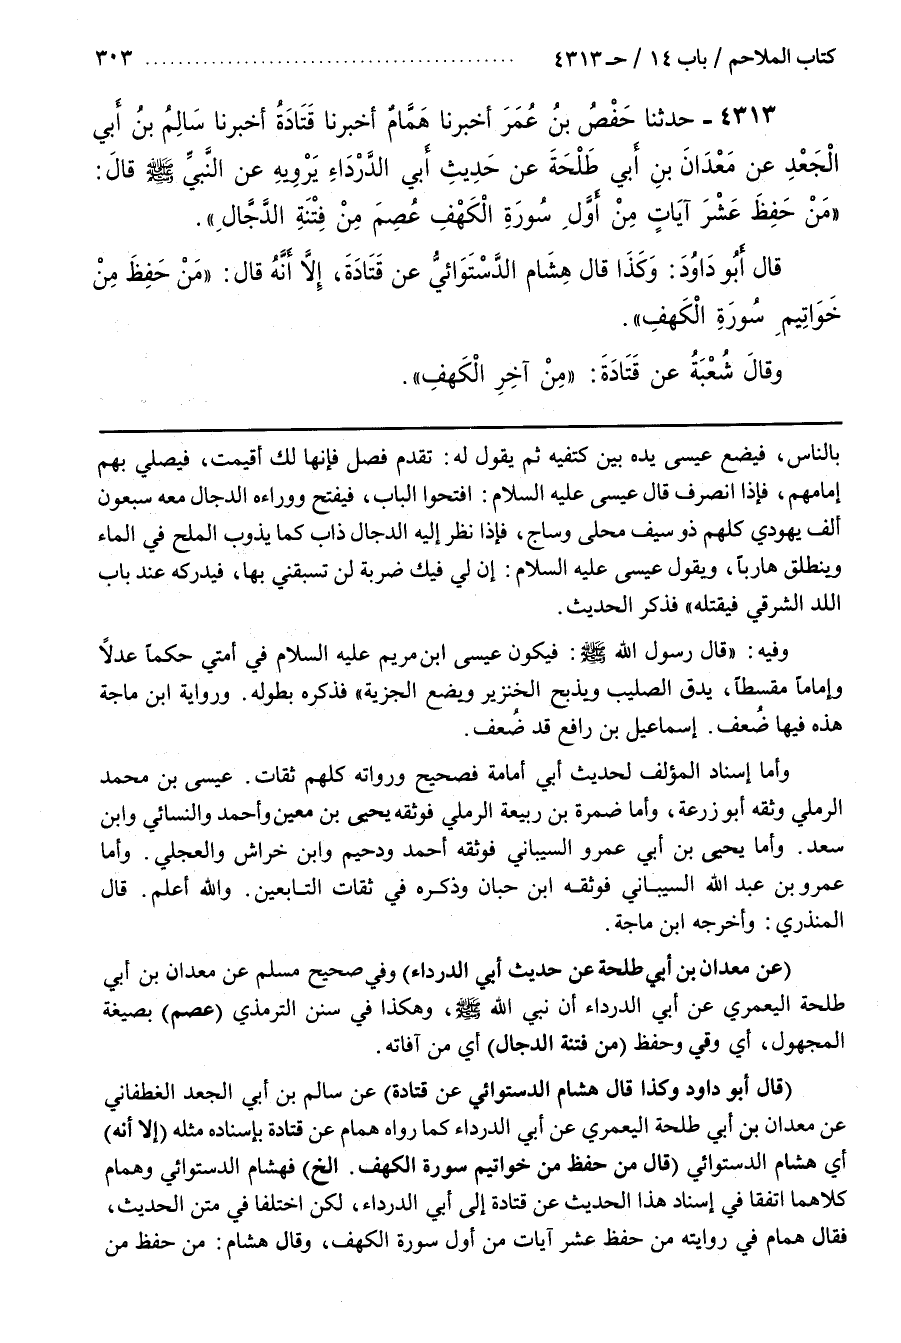 كتاب الملاحم / باب ١٤ / حـ ٤٣١٣ ............................................ ٣٠٣
٤٣١٣ ـ حدثنا حَفْصُ بنُ عُمَرَ أخبرنا هَمَّامٌ أخبرنا قَتَادَةُ أخبرنا سَالِمُ بنُ أَبي
الْجَعْدِ عن مَعْدَانَ بنِ أبي طَلْحَةَ عن حَدِيثِ أبي الدَّرْدَاءِ يَرْوِيهِ عن النَّبيِّ ﷺ قالَ:
«مَنْ حَفِظَ عَشْرَ آيَاتٍ مِنْ أوَّلِ سُورَةِ الْكَهْفِ عُصِمَ مِنْ فِتْنَةِ الدَّجَّالِ».
قال أَبُو دَاوُدَ: وَكَذَا قال هِشَام الدَّسْتَوَائيُّ عن قَتَادَةَ، إلاَّ أنَّهُ قال: «مَنْ حَفِظَ مِنْ
خَوَاتِيمِ سُورَةِ الْكَهفِ».
وقالَ شُعْبَةُ عن قَتَادَةَ: «مِنْ آخِرِ الْكَهفِ».
بالناس، فيضع عيسى يده بين كتفيه ثم يقول له: تقدم فصل فإنها لك أقيمت، فيصلي بهم
إمامهم، فإذا انصرف قال عيسى عليه السلام: افتحوا الباب، فيفتح ووراءه الدجال معه سبعون
ألف يهودي كلهم ذو سيف محلى وساج، فإذا نظر إليه الدجال ذاب كما يذوب الملح في الماء
وينطلق هارباً، ويقول عيسى عليه السلام: إن لي فيك ضربة لن تسبقني بها، فيدركه عند باب
اللد الشرقي فيقتله» فذكر الحديث.
وفيه: «قال رسول الله ﷺ: فيكون عيسى ابن مريم عليه السلام في أمتي حكماً عدلاً
وإماماً مقسطاً، يدق الصليب ويذبح الخنزير ويضع الجزية» فذكره بطوله. ورواية ابن ماجة
هذه فيها ضُعف. إسماعيل بن رافع قد ضُعف.
وأما إسناد المؤلف لحديث أبي أمامة فصحيح ورواته كلهم ثقات. عيسى بن محمد
الرملي وثقه أبو زرعة، وأما ضمرة بن ربيعة الرملي فوثقه يحيى بن معين وأحمد والنسائي وابن
سعد. وأما يحيى بن أبي عمرو السيباني فوثقه أحمد ودحيم وابن خراش والعجلي. وأما
عمرو بن عبد الله السيباني فوثقه ابن حبان وذكره في ثقات التابعين. والله أعلم. قال
المنذري: وأخرجه ابن ماجة.
(عن معدان بن أبي طلحة عن حديث أبي الدرداء) وفي صحيح مسلم عن معدان بن أبي
طلحة اليعمري عن أبي الدرداء أن نبي الله ﷺ، وهكذا في سنن الترمذي (عصم) بصيغة
المجهول، أي وقي وحفظ (من فتنة الدجال) أي من آفاته.
(قال أبو داود وكذا قال هشام الدستوائي عن قتادة) عن سالم بن أبي الجعد الغطفاني
عن معدان بن أبي طلحة اليعمري عن أبي الدرداء كما رواه همام عن قتادة بإسناده مثله (إلا أنه)
أي هشام الدستوائي (قال من حفظ من خواتيم سورة الكهف. الخ) فهشام الدستوائي وهمام
كلاهما اتفقا في إسناد هذا الحديث عن قتادة إلى أبي الدرداء، لكن اختلفا في متن الحديث،
فقال همام في روايته من حفظ عشر آيات من أول سورة الكهف، وقال هشام: من حفظ من